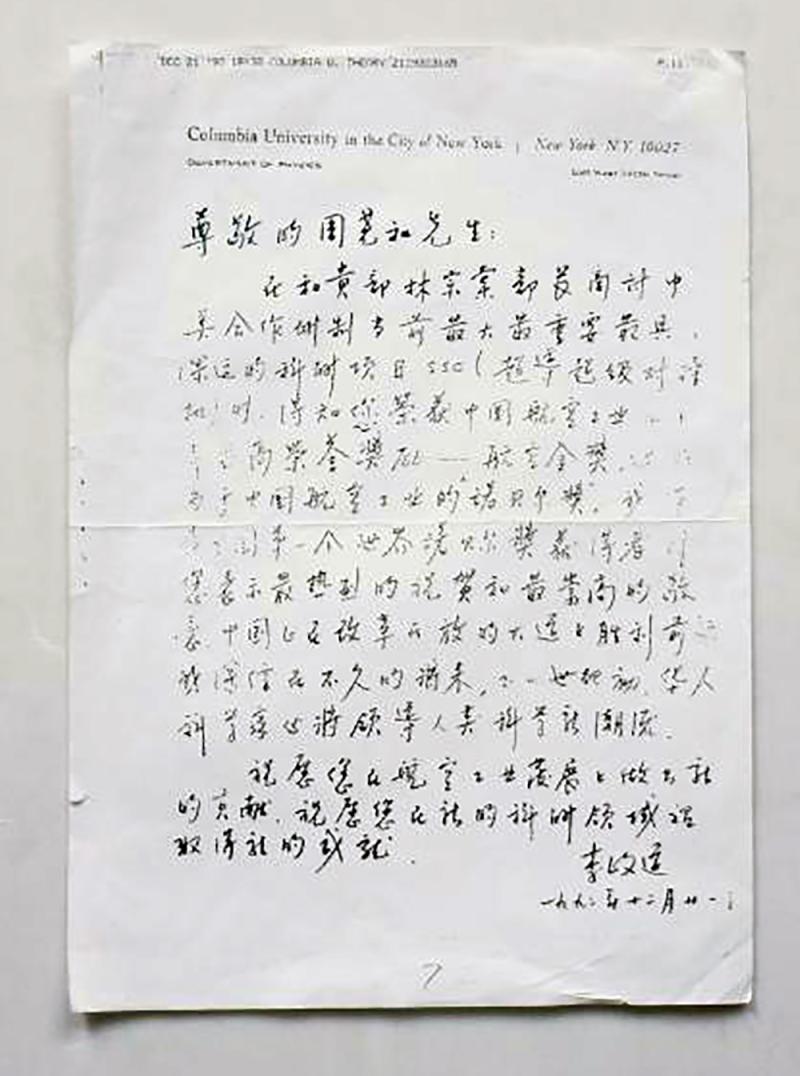 COLUMBIA U. THEORY
Columbia University in the City of New York | New York N.Y. 10027
DEPARTMENT OF PHYSICS
尊敬的周尧和先生:
在和贵部林宗棠部长商计中
美合作研制当前最大最重要最具
深远的科研项目SSC(超导超级对撞
机)时,得知您荣获中国航空工业
高荣誉奖励——航空金奖,
中国航空工业的"诺贝尔奖"。我
国第一个世界诺贝尔奖获得者
您表示最热烈的祝贺和最崇高的敬
意。中国正在改革开放的大道上胜利前
我深信在不久的将来,二一世纪初,华人
科学家必将领导人类科学新潮流。
祝愿您在航空工业发展上做出新
的贡献,祝愿您在新的科研领域裡
取得新的成就.
李政道
一九九二年十二月廿一
7